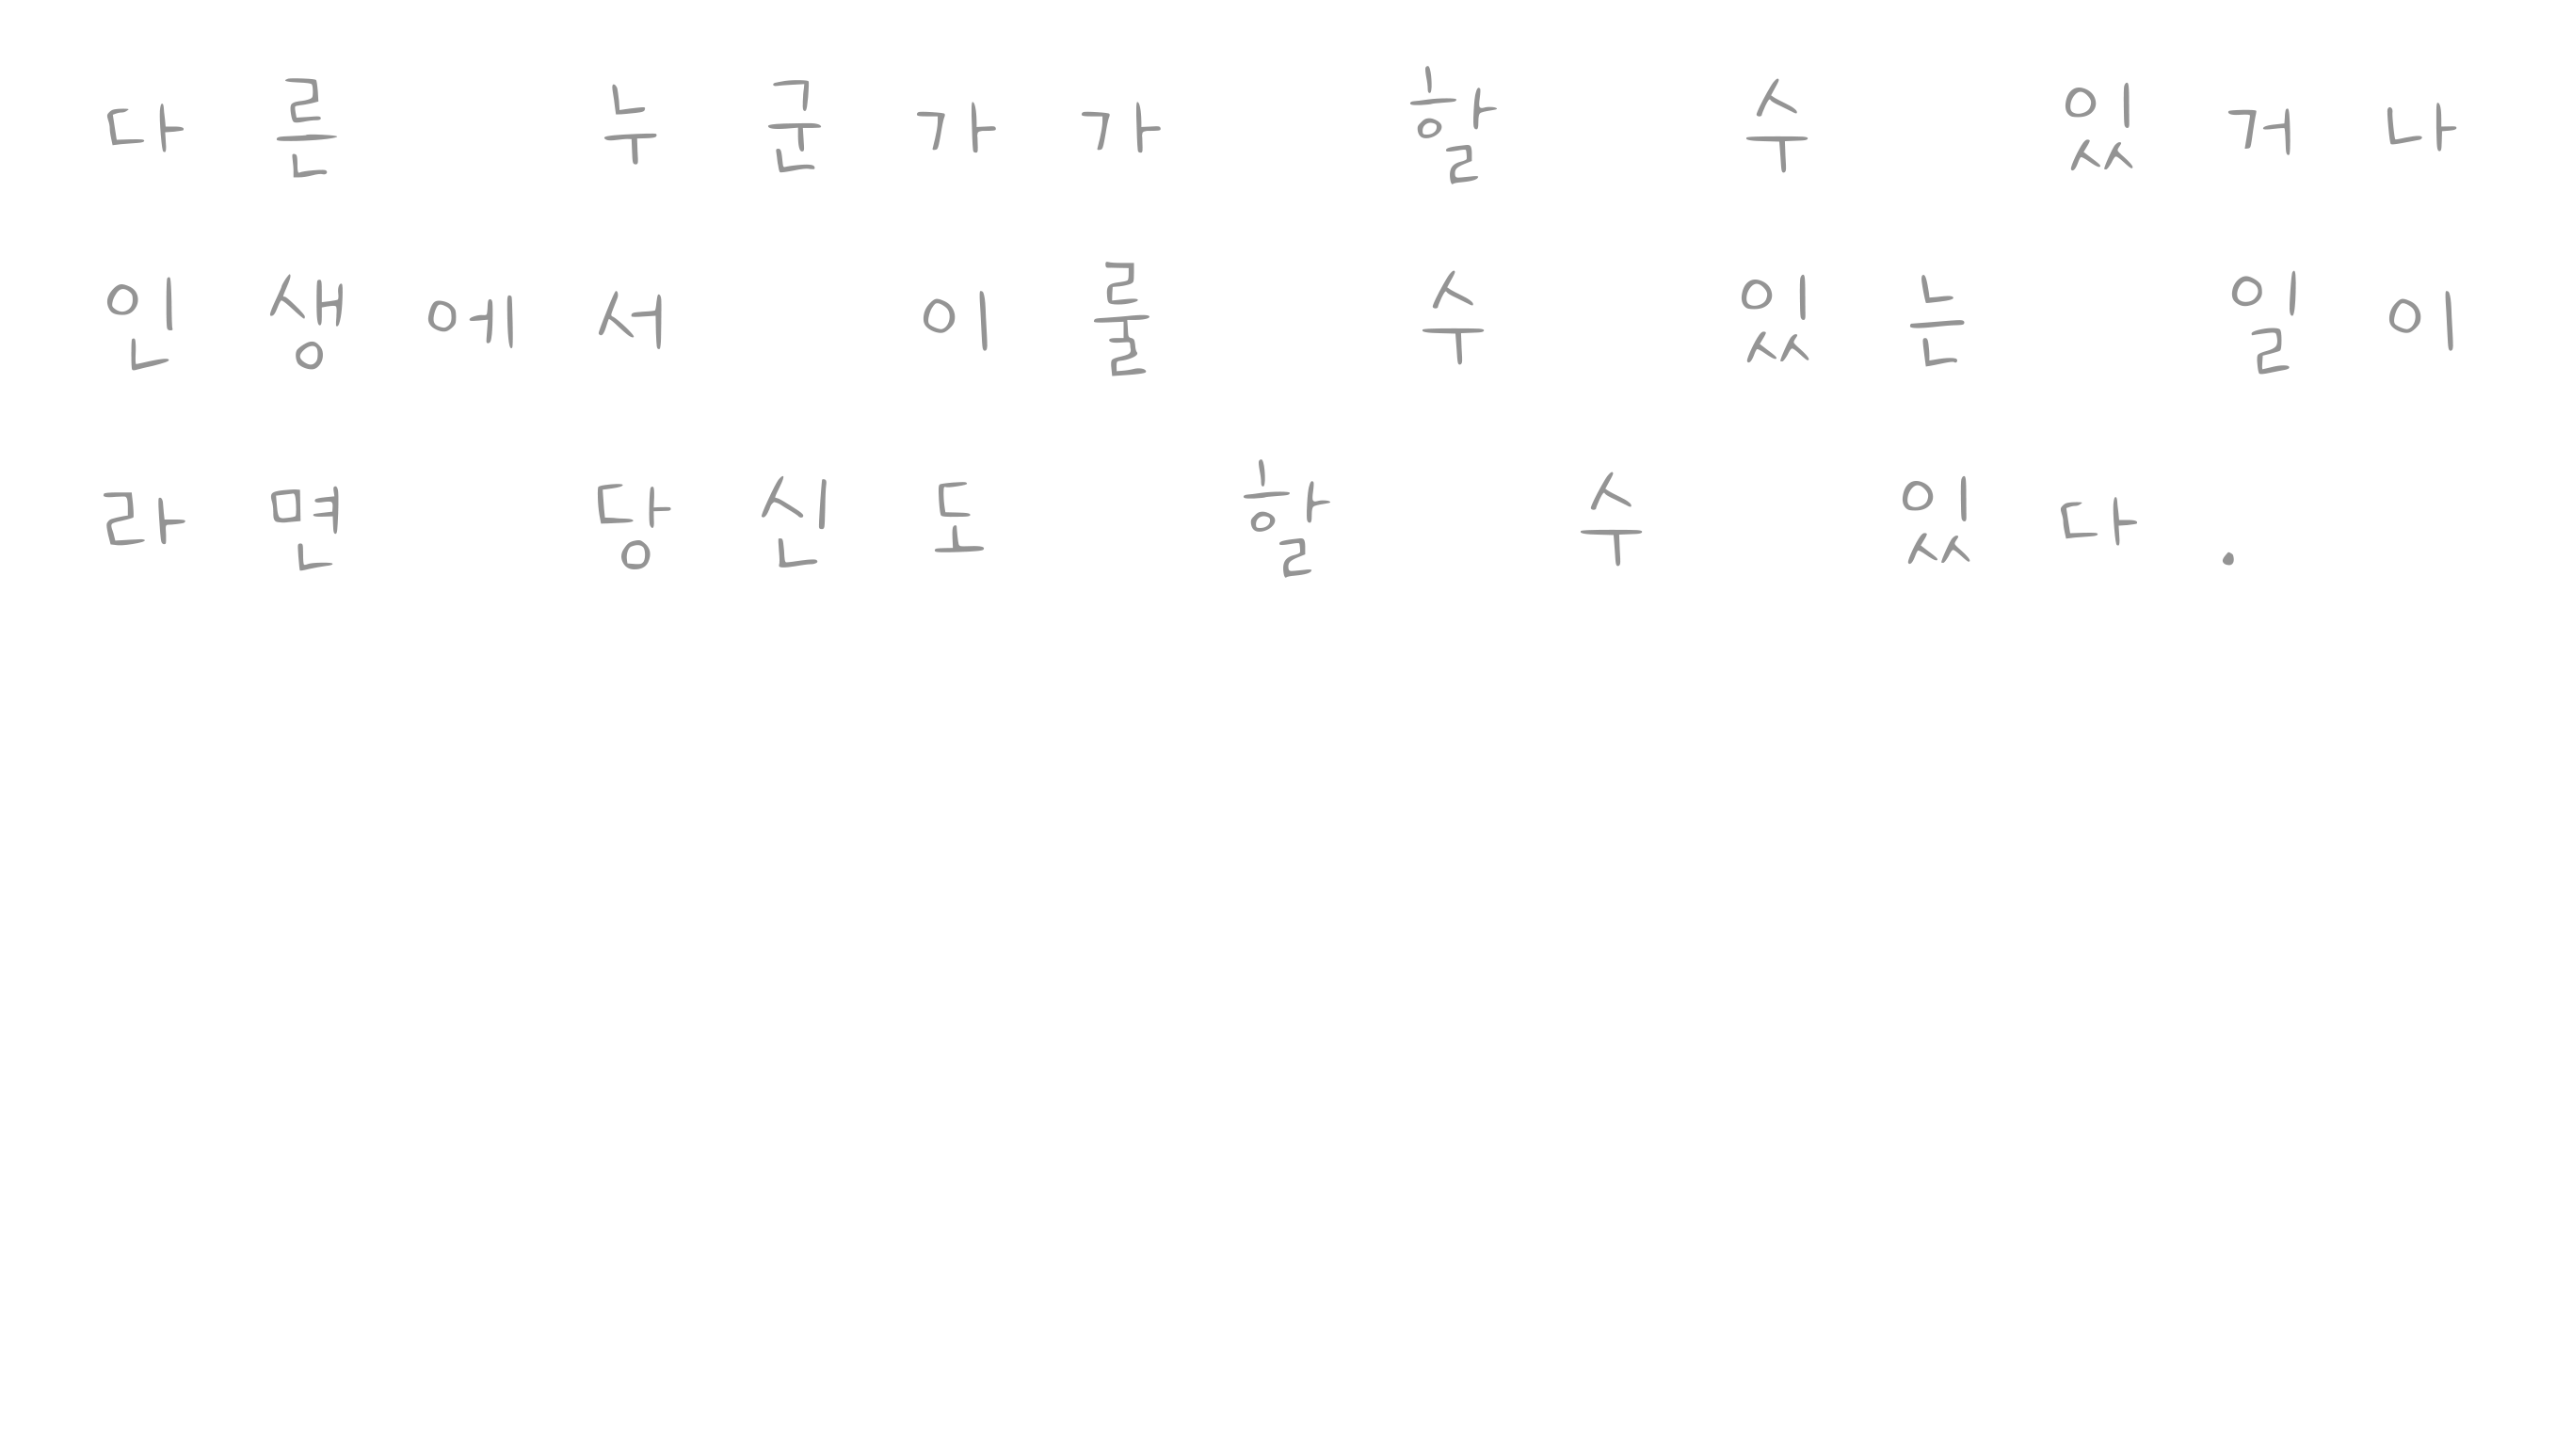 다른 누군가가 할 수 있거나
인생에서 이룰 수 있는 일이
라면 당신도 할 수 있다.